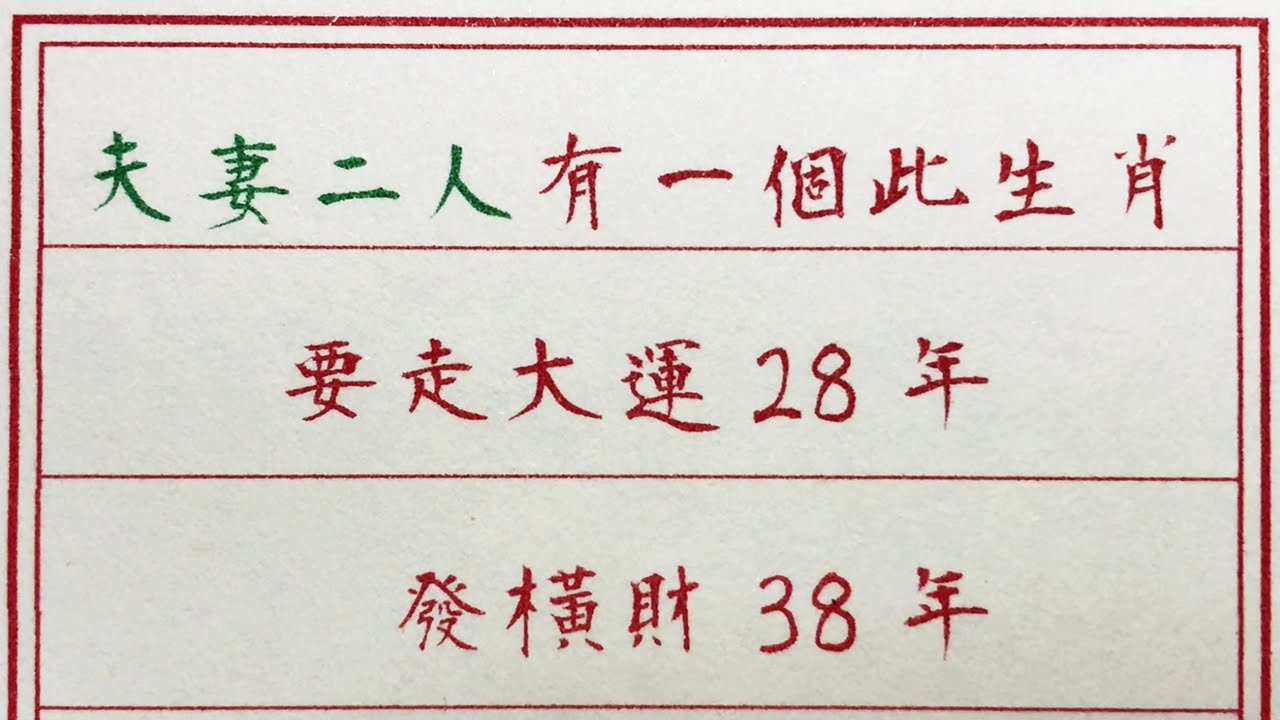 夫妻二人有一個此生肖
要走大運28年
發橫財38年